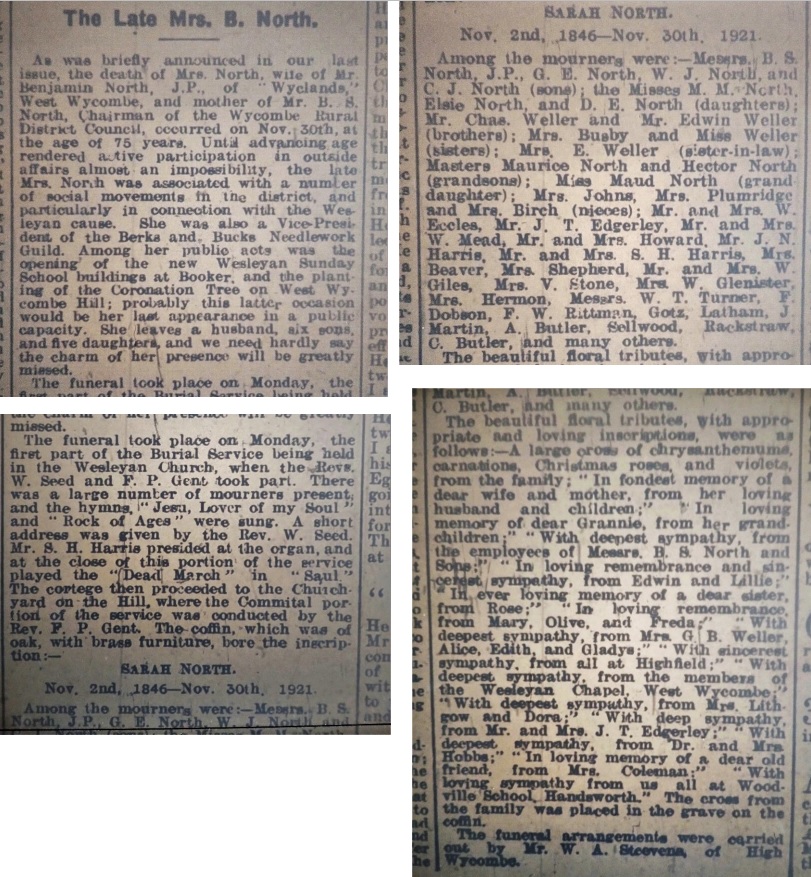 The Late Mrs. B. North.
As was briefly announced in our last
issue, the death of Mrs. North, wife of Mr.
Benjamin North, J.P., of "Wyelands,"
West Wycombe, and mother of Mr. B. S.
North, Chairman of the Wycombe Rural
District Council, occurred on Nov. 30th, at
the age of 75 years. Until advancing age
rendered active participation in outside
affairs almost an impossibility, the late
Mrs. North was associated with a number
of social movements in the district, and
particularly in connection with the Wes-
leyan cause. She was also a Vice-Presi-
dent of the Berks and Bucks Needlework
Guild. Among her public acts was the
opening of the new Wesleyan Sunday
School buildings at Booker, and the plant-
ing of the Coronation Tree on West Wy-
combe Hill; probably this latter occasion
would be her last appearance in a public
capacity. She leaves a husband, six sons,
and five daughters, and we need hardly say
the charm of her presence will be greatly
missed.
The funeral took place on Monday, the
first part of the Burial Service being held
the charm of her presence will be greatly
missed.
The funeral took place on Monday, the
first part of the Burial Service being held
in the Wesleyan Church, when the Revs.
W. Seed and F. P. Gent took part. There
was a large number of mourners present,
and the hymns, "Jesu, Lover of my Soul"
and "Rock of Ages" were sung. A short
address was given by the Rev. W. Seed.
Mr. S. H. Harris presided at the organ, and
at the close of this portion of the service
played the "Dead March" in "Saul"
The cortege then proceeded to the Church-
yard on the Hill, where the Commital por-
tion of the service was conducted by the
Rev. F. P. Gent. The coffin, which was of
oak, with brass furniture, bore the inscrip-
tion:—
SARAH NORTH.
Nov. 2nd, 1846—Nov. 30th, 1921.
Among the mourners were:—Messrs. B. S.
North, J.P., G. E. North, W. J. North and
SARAH NORTH.
Nov. 2nd, 1846—Nov. 30th, 1921.
Among the mourners were:—Messrs. B. S.
North, J.P., G. E. North, W. J. North, and
C. J. North (sons); the Misses M. M. North,
Elsie North, and D. E. North (daughters);
Mr. Chas. Weller and Mr. Edwin Weller
(brothers); Mrs. Busby and Miss Weller
(sisters); Mrs. E. Weller (sister-in-law);
Masters Maurice North and Hector North
(grandsons); Miss Maud North (grand-
daughter); Mrs. Johns, Mrs. Plumridge
and Mrs. Birch (nieces); Mr. and Mrs. W.
Eccles, Mr. J. T. Edgerley, Mr. and Mrs.
W. Mead, Mr. and Mrs. Howard, Mr. J. N.
Harris, Mr. and Mrs. S. H. Harris, Mrs.
Beaver, Mrs. Shepherd, Mr. and Mrs. W.
Giles, Mrs. V. Stone, Mrs. W. Glenister,
Mrs. Hermon, Messrs. W. T. Turner, F.
Dobson, F. W. Rittman, Gotz, Latham, J.
Martin, A. Butler, Sellwood, Rackstraw,
C. Butler, and many others.
The beautiful floral tributes, with appro-
Martin, A. Butler, Sellwood, Rackstraw,
C. Butler, and many others.
The beautiful floral tributes, with appro-
priate and loving inscriptions, were as
follows:—A large cross of chrysanthemums,
carnations, Christmas roses, and violets,
from the family; "In fondest memory of a
dear wife and mother, from her loving
husband and children;" "In loving
memory of dear Grannie, from her grand-
children;" "With deepest sympathy, from
the employees of Messrs. B. S. North and
Sons;" "In loving remembrance and sin-
cerest sympathy, from Edwin and Lillie;"
"In ever loving memory of a dear sister,
from Rose;" "In loving remembrance,
from Mary, Olive, and Freda;" "With
deepest sympathy, from Mrs. G. B. Weller,
Alice, Edith, and Gladys;" "With sincerest
sympathy, from all at Highfield;" "With
deepest sympathy, from the members of
the Wesleyan Chapel, West Wycombe;"
"With deepest sympathy, from Mrs. Lith-
gow and Dora;" "With deep sympathy,
from Mr. and Mrs. J. T. Edgerley;" "With
deepest sympathy, from Dr. and Mrs.
Hobbs;" "In loving memory of a dear old
friend, from Mrs. Coleman;" "With
loving sympathy from us all at Wood-
ville School, Handsworth." The cross from
the family was placed in the grave on the
coffin.
The funeral arrangements were carried
out by Mr. W. A. Steevens, of High
Wycombe.